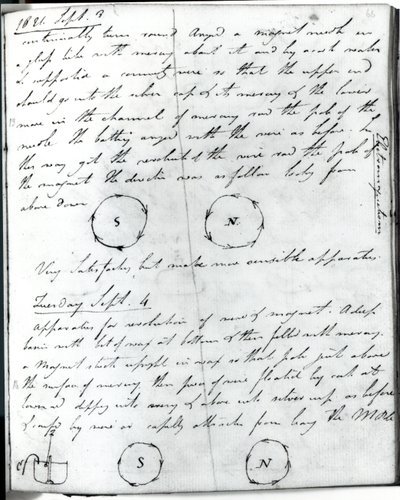 1821. Sept. 3
66
continually turn round. Arranged a magnet needle in
a glass tube with mercury about it and by a cork water
&c supported a connecting wire so that the upper end
should go into the silver cup & its mercury & the lower
move in the channel of mercury round the pole of the
needle. The battery arranged with the wire as before. In
this way got the revolution of the wire round the pole of
the magnet. The direction was as follow looking from
above down
Electromagnetism
S
N
Very Satisfactory, but make more sensible apparatus.
Tuesday Sept. 4
Apparatus for revolution of wire & magnet. A deep
basin with bit of wax at bottom & then filled with mercury
a Magnet stuck upright in wax so that pole just above
the surface of mercury then piece of wire floated by cork at
lower end dipping into mercury & above into silver cup as before
& confined by wire or capilly attraction from leaving the Middle
S
N